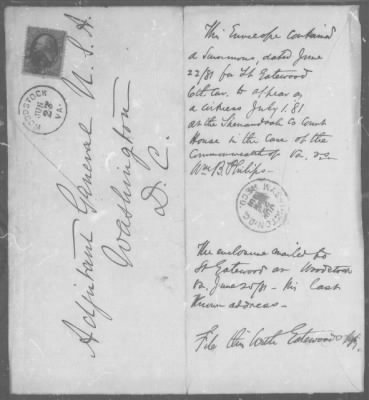 Adjutant General U.S.A.
Washington
D.C.
WOODSTOCK
JUN
22
VA.
This Envelope contained
a Summons, dated June
22/81 for Lt Gatewood
6th Cav. to appear as
a witness July 1.81
at the Shenandoah Co Court
House in the case of the
Commonwealth of Va. vs
Wm B. Philips.
The enclosure mailed to
Lt Gatewood at Woodstock
Va. June 25/81 - his last
Known address -
File this with Gatewoods